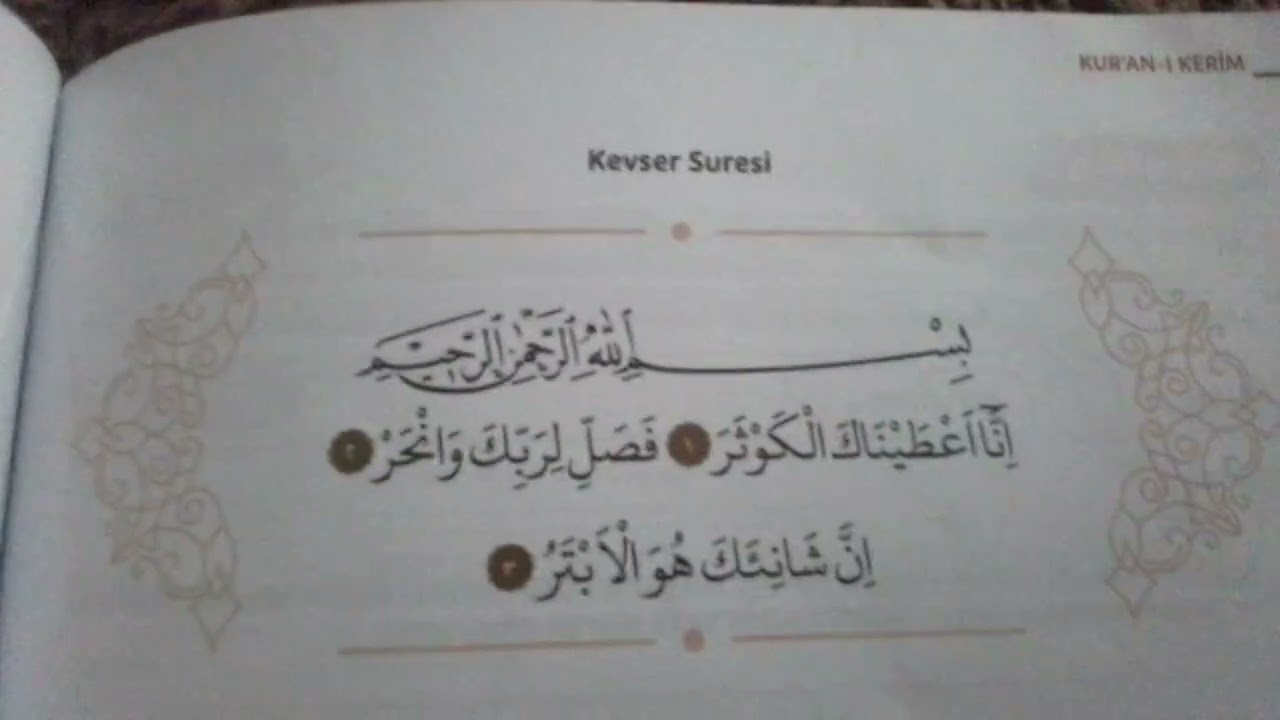 KUR'AN-I KERİM
Kevser Suresi
بِسْمِ اللّٰهِ الرَّحْمٰنِ الرَّحٖيمِ
اِنَّٓا اَعْطَيْنَاكَ الْكَوْثَرَ ﴿١﴾ فَصَلِّ لِرَبِّكَ وَانْحَرْ ﴿٢﴾
اِنَّ شَانِئَكَ هُوَ الْاَبْتَرُ ﴿٣﴾